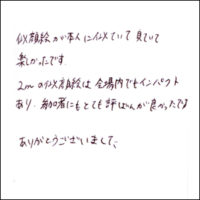 似顔絵が本人に似ていて見ていて
楽しかったです。
2mの似顔絵は会場内でもインパクト
あり、参加者にもとても評ばんが良かったです
ありがとうございまして、